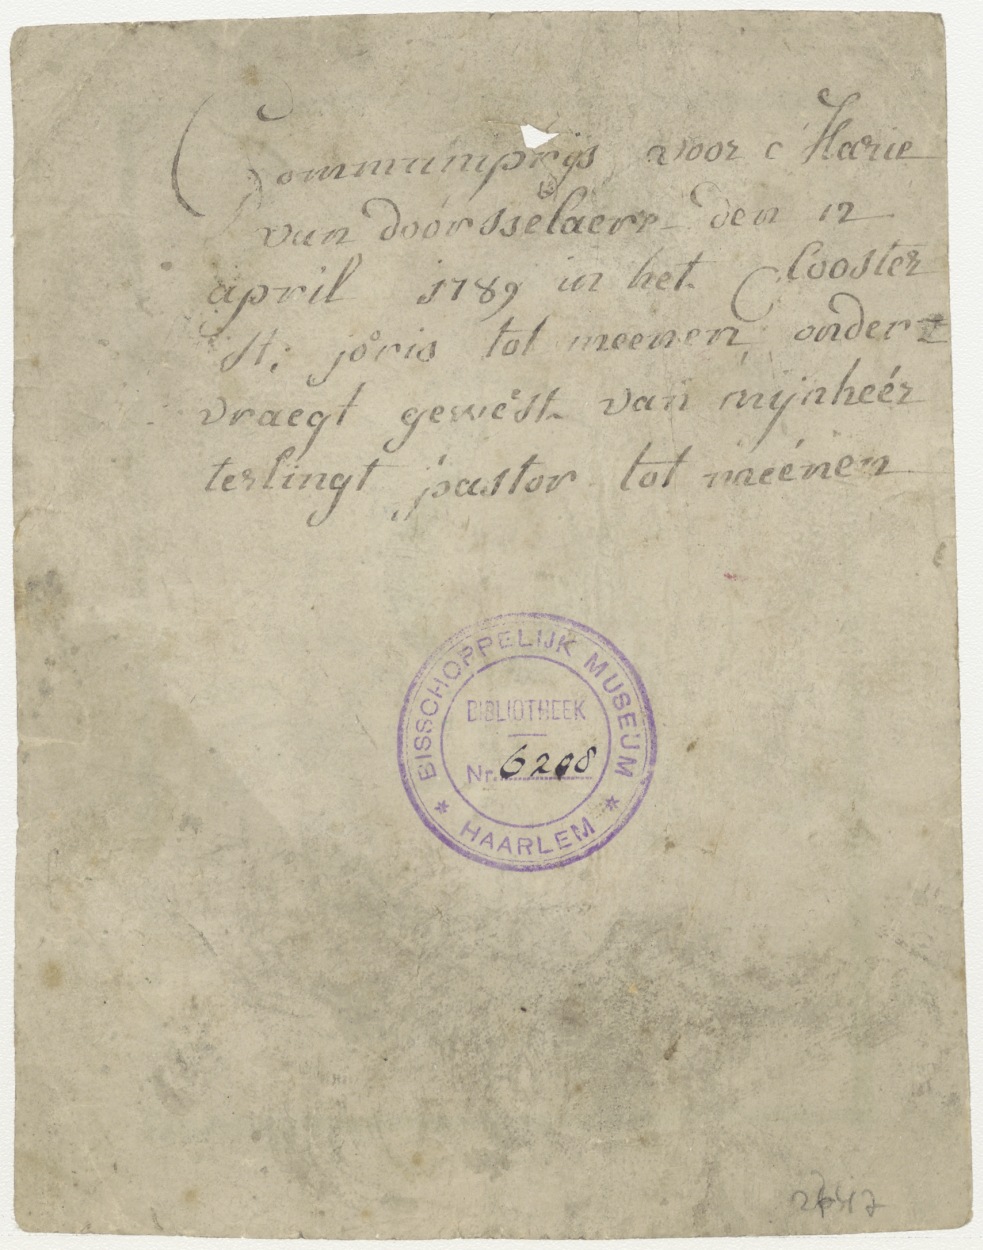 Communiprijs voor c Marie
van doorsselaere den 12
april 1789 in het Clooster
St: joris tot meenen onder=
vraegt geweest van mijnheer
terlingt pastor tot meenen
BISSCHOPPELIJK MUSEUM
BIBLIOTHEEK
Nr. 6208
* HAARLEM *